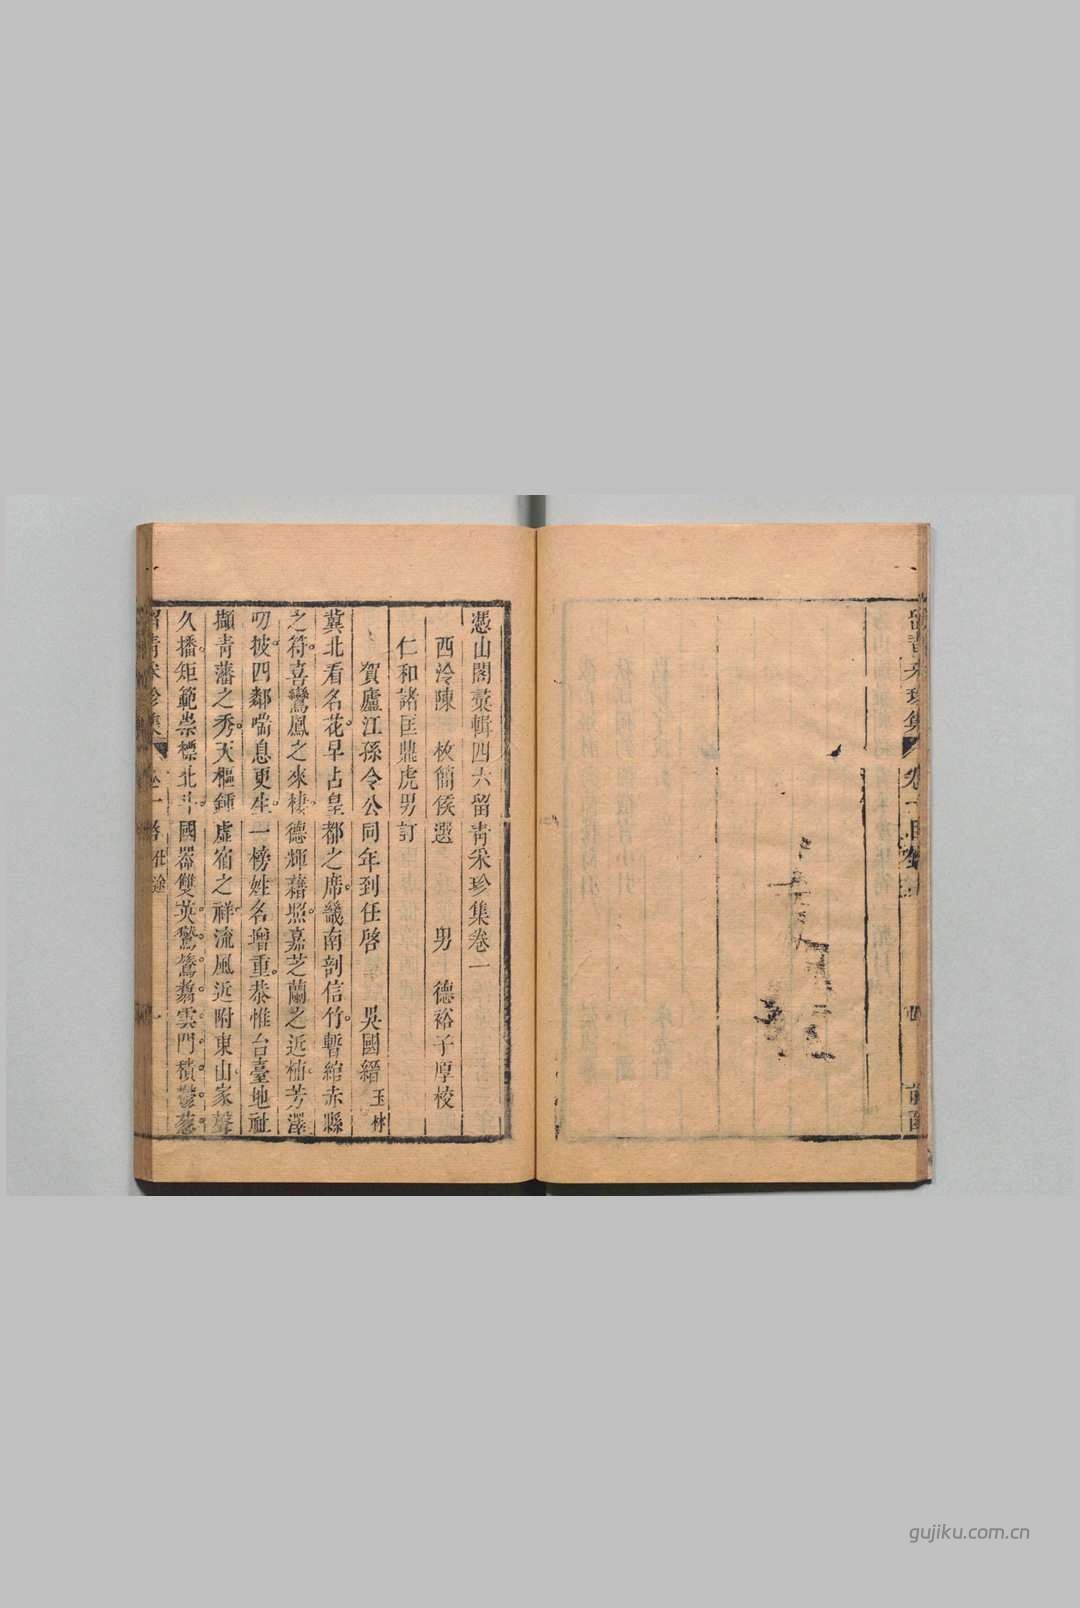 憑山閣彙輯四六留青采珍集卷一
西泠陳　枚簡侯選　男　德裕子厚校
仁和諸匡鼎虎男訂
賀廬江孫令公同年到任啓　吳國縉玉林
冀北看名花早占皇都之席畿南剖信竹暫綰赤縣
之符喜鸞鳳之來棲德輝藉照嘉芝蘭之近楠芳澤
叨披四鄰喘息更生一榜姓名增重恭惟台臺地祉
擷青藩之秀天樞鍾虛宿之祥流風近附東山家聲
久播矩範崇標北斗國器雙英驚鷟翥雲門積鬱葱
留青采珍集　卷一啓
留青采珍集　卷一目錄
四
gujiku.com.cn